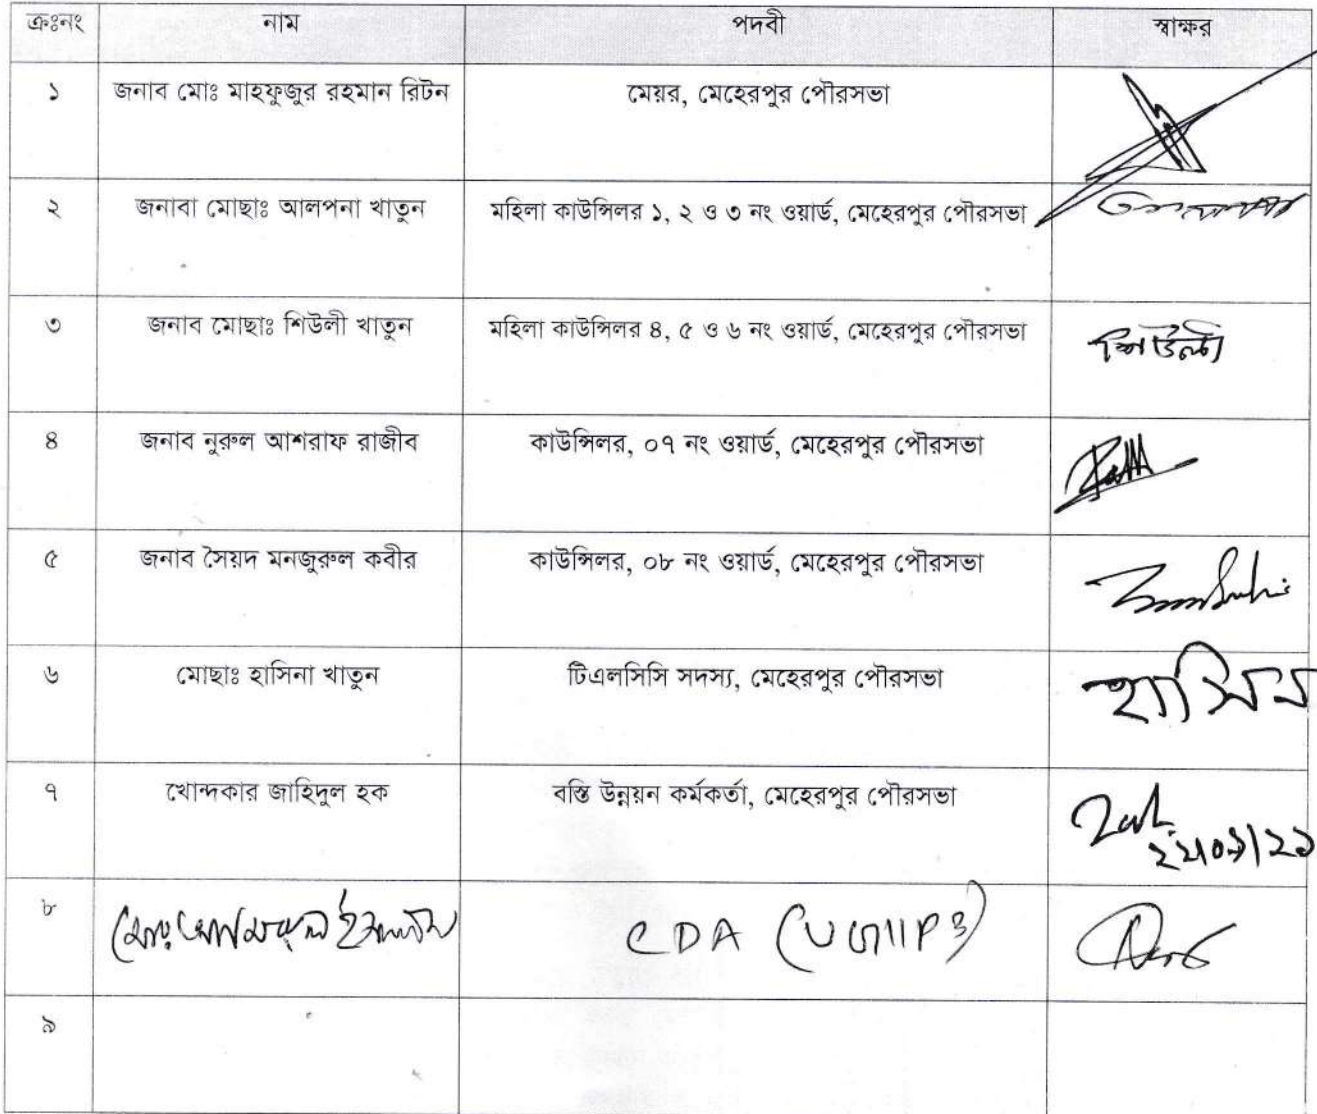 ক্রঃনং নাম পদবী স্বাক্ষর
১ জনাব মোঃ মাহফুজুর রহমান রিটন মেয়র, মেহেরপুর পৌরসভা
২ জনাবা মোছাঃ আলপনা খাতুন মহিলা কাউন্সিলর ১, ২ ও ৩ নং ওয়ার্ড, মেহেরপুর পৌরসভা
৩ জনাব মোছাঃ শিউলী খাতুন মহিলা কাউন্সিলর ৪, ৫ ও ৬ নং ওয়ার্ড, মেহেরপুর পৌরসভা শিউলী
৪ জনাব নুরুল আশরাফ রাজীব কাউন্সিলর, ০৭ নং ওয়ার্ড, মেহেরপুর পৌরসভা
৫ জনাব সৈয়দ মনজুরুল কবীর কাউন্সিলর, ০৮ নং ওয়ার্ড, মেহেরপুর পৌরসভা
৬ মোছাঃ হাসিনা খাতুন টিএলসিসি সদস্য, মেহেরপুর পৌরসভা হাসিনা
৭ খোন্দকার জাহিদুল হক বস্তি উন্নয়ন কর্মকর্তা, মেহেরপুর পৌরসভা
৮ মোঃ ইসলাম CDA (UGIIP3)
৯